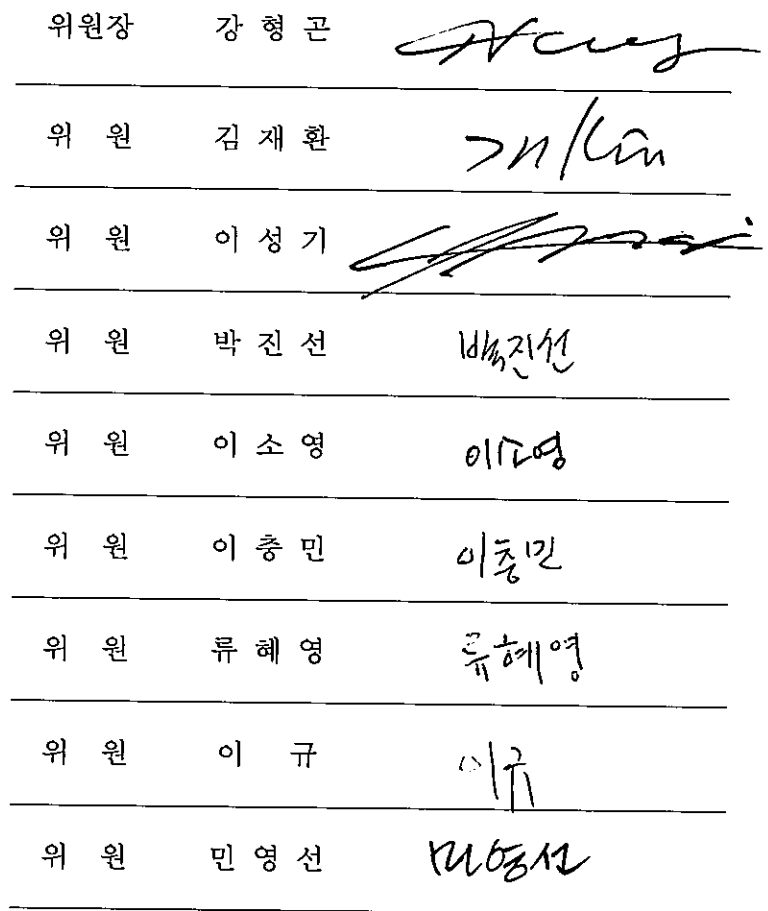 위원장 강 형 곤
위 원 김 재 환
위 원 이 성 기
위 원 박 진 선 박진선
위 원 이 소 영 이소영
위 원 이 충 민 이충민
위 원 류 혜 영 류혜영
위 원 이 규 이규
위 원 민 영 선 민영선